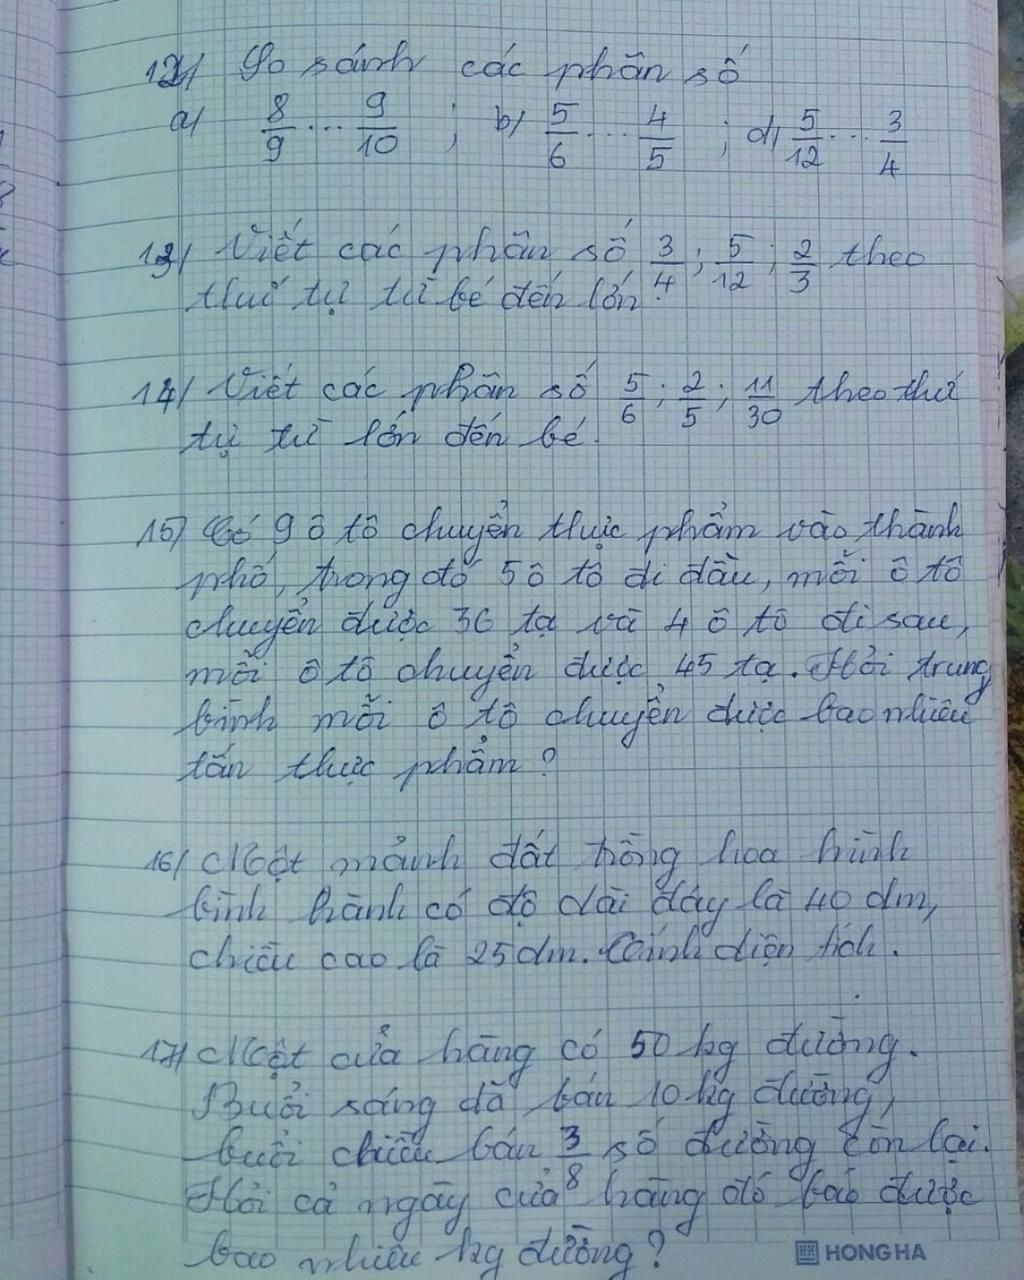 12/ So sánh các phân số
a/ 8/9 ... 9/10 ; b/ 5/6 ... 4/5 ; d/ 5/12 ... 3/4
13/ Viết các phân số 3/4 ; 5/12 ; 2/3 theo
thứ tự từ bé đến lớn.
14/ Viết các phân số 5/6 ; 2/5 ; 11/30 theo thứ
tự từ lớn đến bé.
15/ Có 9 ô tô chuyển thực phẩm vào thành
phố, trong đó 5 ô tô đi đầu, mỗi ô tô
chuyển được 36 tạ và 4 ô tô đi sau,
mỗi ô tô chuyển được 45 tạ. Hỏi trung
bình mỗi ô tô chuyển được bao nhiêu
tấn thực phẩm?
16/ Một mảnh đất trồng hoa hình
bình hành có độ dài đáy là 40 dm,
chiều cao là 25 dm. Tính diện tích.
17/ Một cửa hàng có 50 kg đường.
Buổi sáng đã bán 10 kg đường,
buổi chiều bán 3/8 số đường còn lại.
Hỏi cả ngày cửa hàng đó báo được
bao nhiêu kg đường?
HONG HA